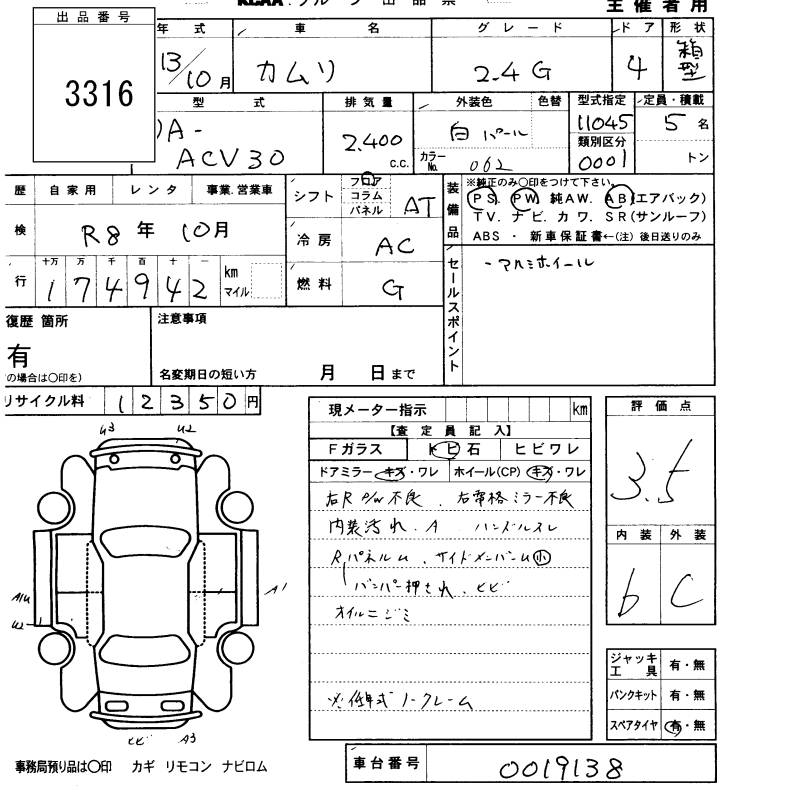 主催者用
出品番号
3316
年式 車名 グレード ドア 形状
13/10月 カムリ 2.4G 4 箱型
型式 排気量 外装色 色替 型式指定 定員・積載
DA-ACV30 2.400 c.c. 白パール 11045 5名
カラーNo. 062 類別区分 0001 トン
歴 自家用 レンタ 事業.営業車
シフト フロア コラム パネル AT
装備品 ※純正のみ〇印をつけて下さい。
PS. PW. 純AW. AB(エアバック)
TV. ナビ. カワ. SR(サンルーフ)
ABS ・ 新車保証書←(注) 後日送りのみ
検 R8年 10月
冷房 AC
行 十万 万 千 百 十 一
174942 km マイル
燃料 G
セールスポイント
・アルミホイール
復歴 箇所
有
の場合は〇印を)
注意事項
名変期日の短い方 月 日まで
リサイクル料 12350円
現メーター指示 km
評価点
3.5
【査定員記入】
Fガラス トビ石 ヒビワレ
ドアミラー キズ・ワレ ホイール(CP) キズ・ワレ
右R P/W不良. 右電格ミラー不良
内装汚れ. A ハンドルスレ
Rパネルム. サイドメンバーム小
バンパー押され. ヒビ
オイルニジミ
※低年式ノークレーム
内装 外装
b C
ジャッキ工具 有・無
パンクキット 有・無
スペアタイヤ 有・無
U3 U2
A1U
U2
A1
ヒビ A3
事務局預り品は〇印 カギ リモコン ナビロム
車台番号 0019138